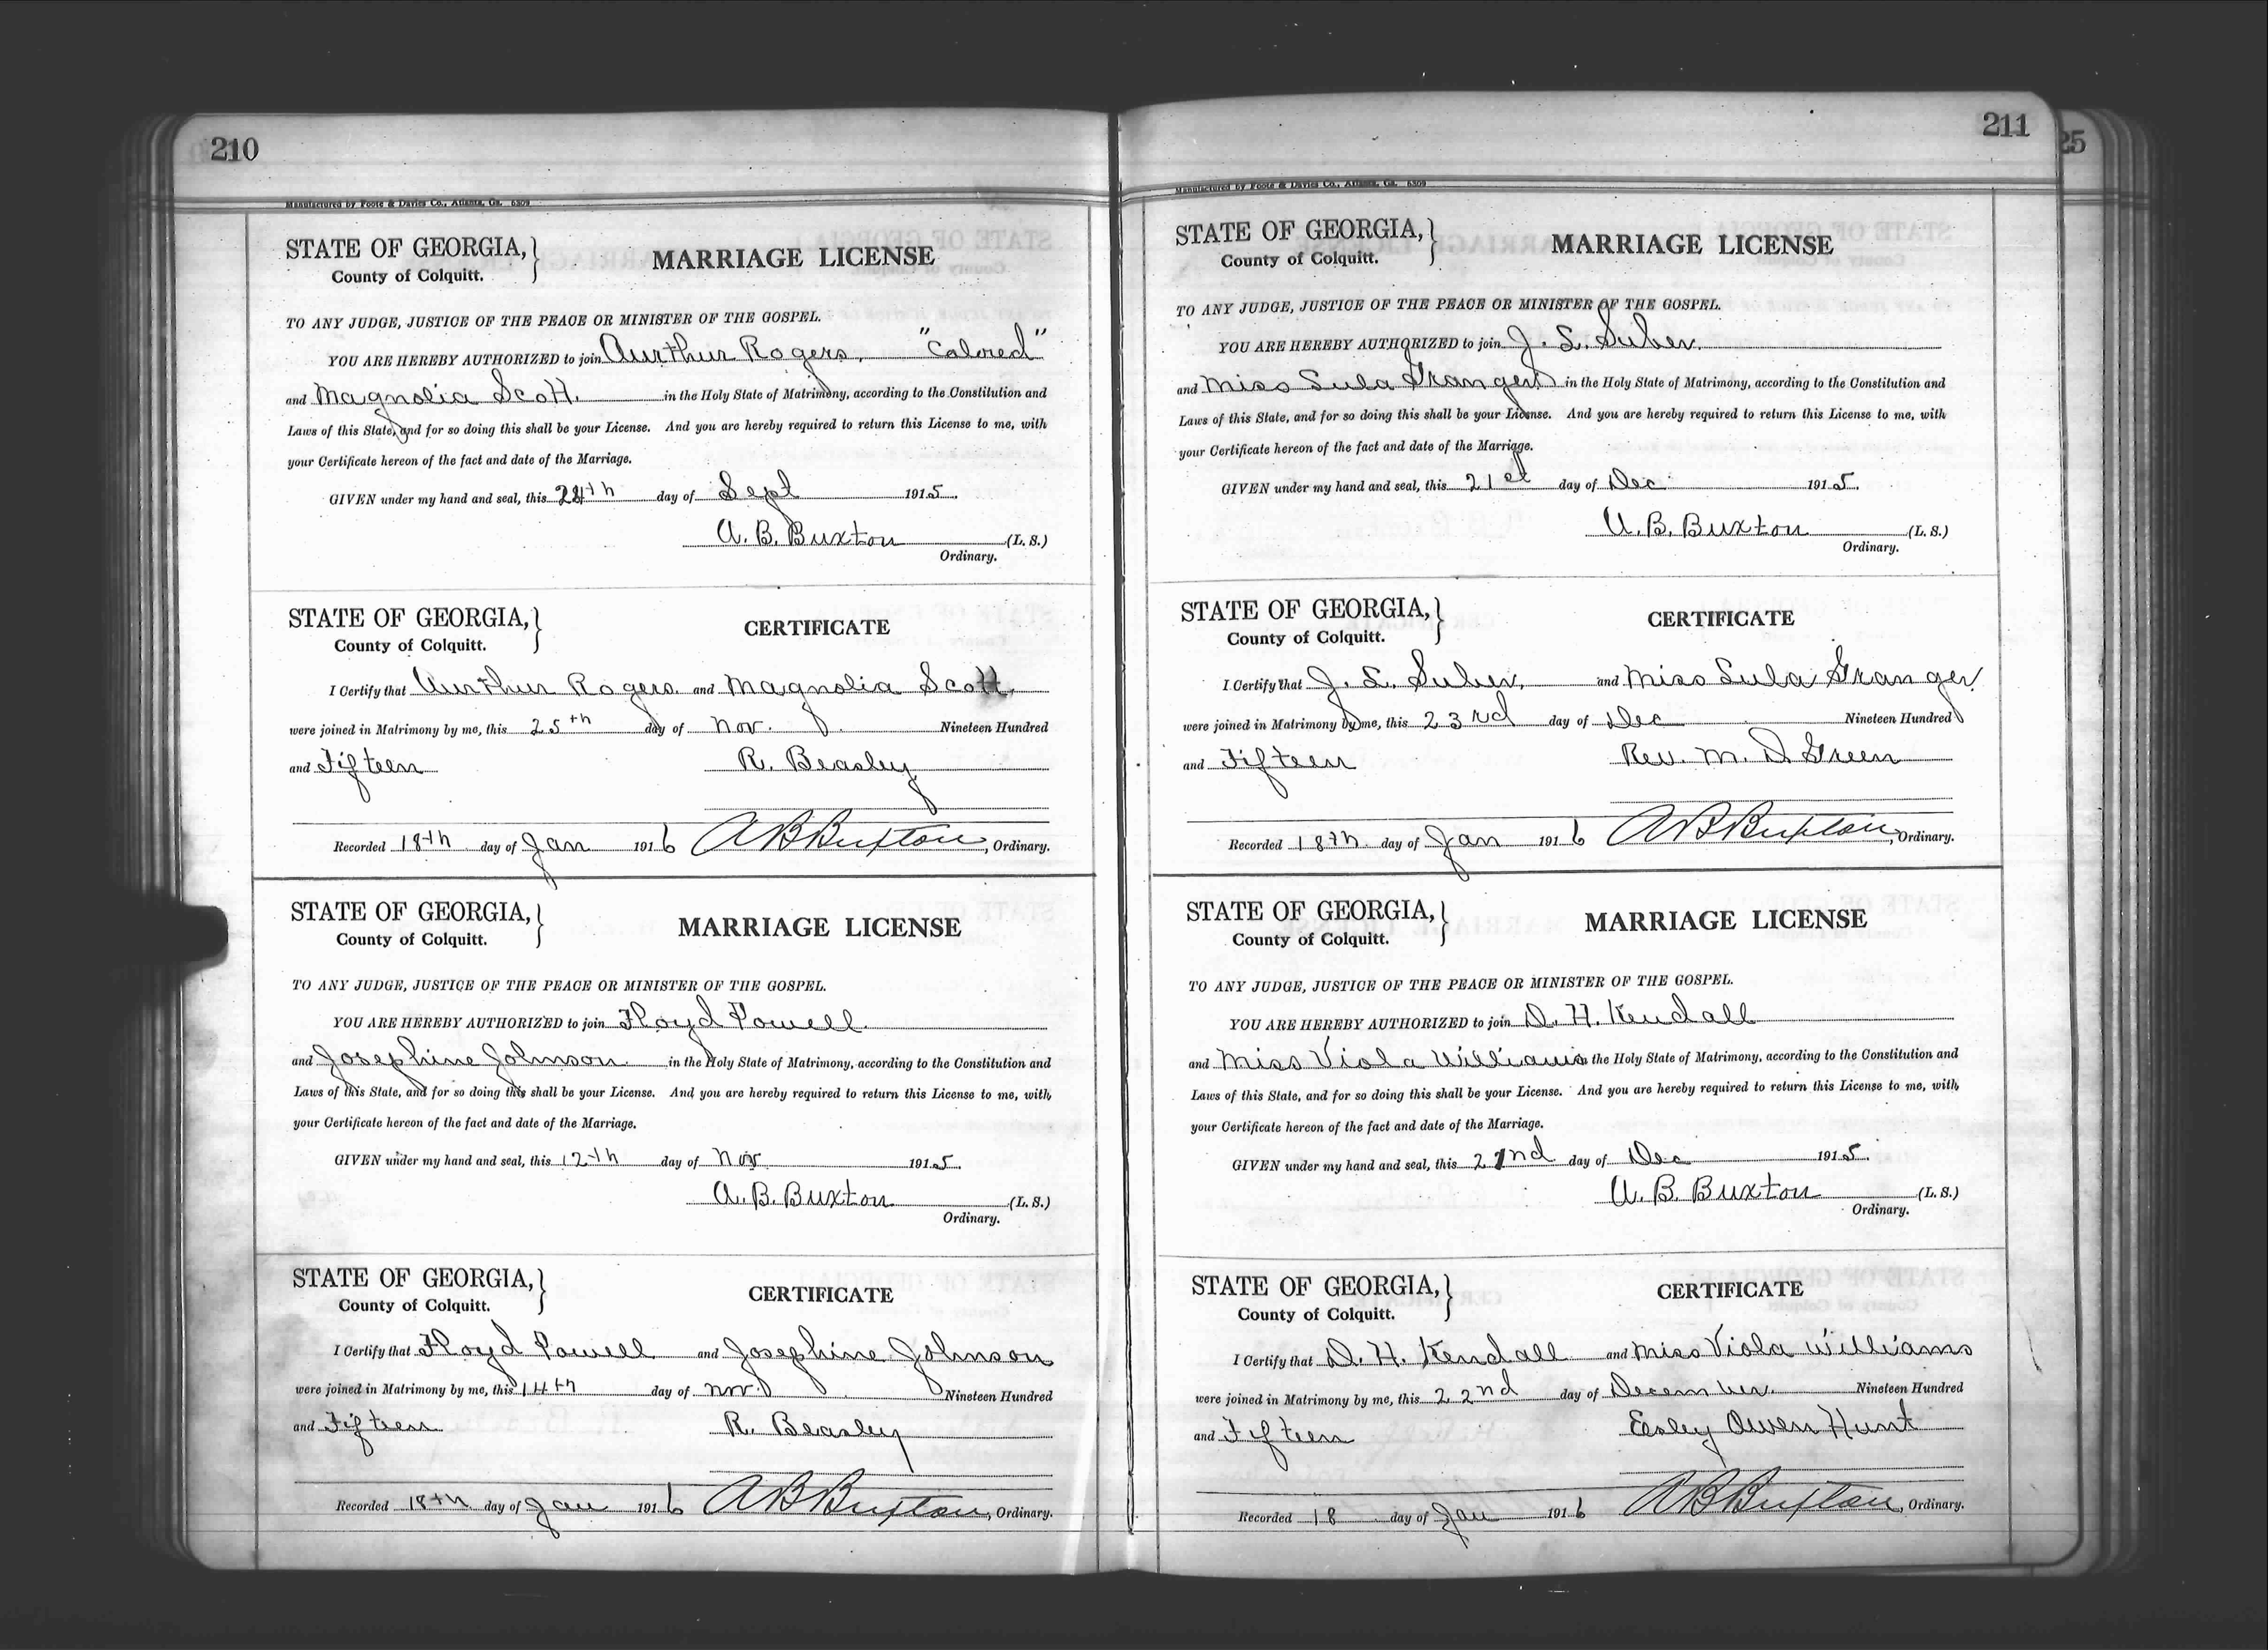 210
Manufactured by Foote & Davies Co., Atlanta, Ga. 6309
STATE OF GEORGIA, }
County of Colquitt.
MARRIAGE LICENSE
TO ANY JUDGE, JUSTICE OF THE PEACE OR MINISTER OF THE GOSPEL.
YOU ARE HEREBY AUTHORIZED to join Aurthur Rogers, "Colored"
and Magnolia Scott. in the Holy State of Matrimony, according to the Constitution and
Laws of this State, and for so doing this shall be your License. And you are hereby required to return this License to me, with
your Certificate hereon of the fact and date of the Marriage.
GIVEN under my hand and seal, this 24th day of Sept 1915.
A. B. Buxton (L. S.)
Ordinary.
STATE OF GEORGIA, }
County of Colquitt.
CERTIFICATE
I Certify that Aurthur Rogers and Magnolia Scott.
were joined in Matrimony by me, this 25th day of Nov. Nineteen Hundred
and Fifteen R. Beasley
Recorded 18th day of Jan 1916 A B Buxton, Ordinary.
STATE OF GEORGIA, }
County of Colquitt.
MARRIAGE LICENSE
TO ANY JUDGE, JUSTICE OF THE PEACE OR MINISTER OF THE GOSPEL.
YOU ARE HEREBY AUTHORIZED to join Floyd Powell.
and Josephine Johnson in the Holy State of Matrimony, according to the Constitution and
Laws of this State, and for so doing this shall be your License. And you are hereby required to return this License to me, with
your Certificate hereon of the fact and date of the Marriage.
GIVEN under my hand and seal, this 12th day of Nov 1915.
A. B. Buxton (L. S.)
Ordinary.
STATE OF GEORGIA, }
County of Colquitt.
CERTIFICATE
I Certify that Floyd Powell and Josephine Johnson
were joined in Matrimony by me, this 14th day of Nov. Nineteen Hundred
and Fifteen R. Beasley
Recorded 18th day of Jan 1916 A B Buxton, Ordinary.
211
25
Manufactured by Foote & Davies Co., Atlanta, Ga. 6309
STATE OF GEORGIA, }
County of Colquitt.
MARRIAGE LICENSE
TO ANY JUDGE, JUSTICE OF THE PEACE OR MINISTER OF THE GOSPEL.
YOU ARE HEREBY AUTHORIZED to join J. L. Suber.
and Miss Lula Granger in the Holy State of Matrimony, according to the Constitution and
Laws of this State, and for so doing this shall be your License. And you are hereby required to return this License to me, with
your Certificate hereon of the fact and date of the Marriage.
GIVEN under my hand and seal, this 21st day of Dec 1915.
A. B. Buxton (L. S.)
Ordinary.
STATE OF GEORGIA, }
County of Colquitt.
CERTIFICATE
I Certify that J. L. Suber, and Miss Lula Granger
were joined in Matrimony by me, this 23rd day of Dec Nineteen Hundred
and Fifteen Rev. M. D. Green
Recorded 18th day of Jan 1916 A B Buxton, Ordinary.
STATE OF GEORGIA, }
County of Colquitt.
MARRIAGE LICENSE
TO ANY JUDGE, JUSTICE OF THE PEACE OR MINISTER OF THE GOSPEL.
YOU ARE HEREBY AUTHORIZED to join D. H. Kendall
and Miss Viola Williams in the Holy State of Matrimony, according to the Constitution and
Laws of this State, and for so doing this shall be your License. And you are hereby required to return this License to me, with
your Certificate hereon of the fact and date of the Marriage.
GIVEN under my hand and seal, this 22nd day of Dec 1915.
A. B. Buxton (L. S.)
Ordinary.
STATE OF GEORGIA, }
County of Colquitt.
CERTIFICATE
I Certify that D. H. Kendall and Miss Viola Williams
were joined in Matrimony by me, this 22nd day of December. Nineteen Hundred
and Fifteen Esley Owen Hunt
Recorded 18 day of Jan 1916 A B Buxton, Ordinary.